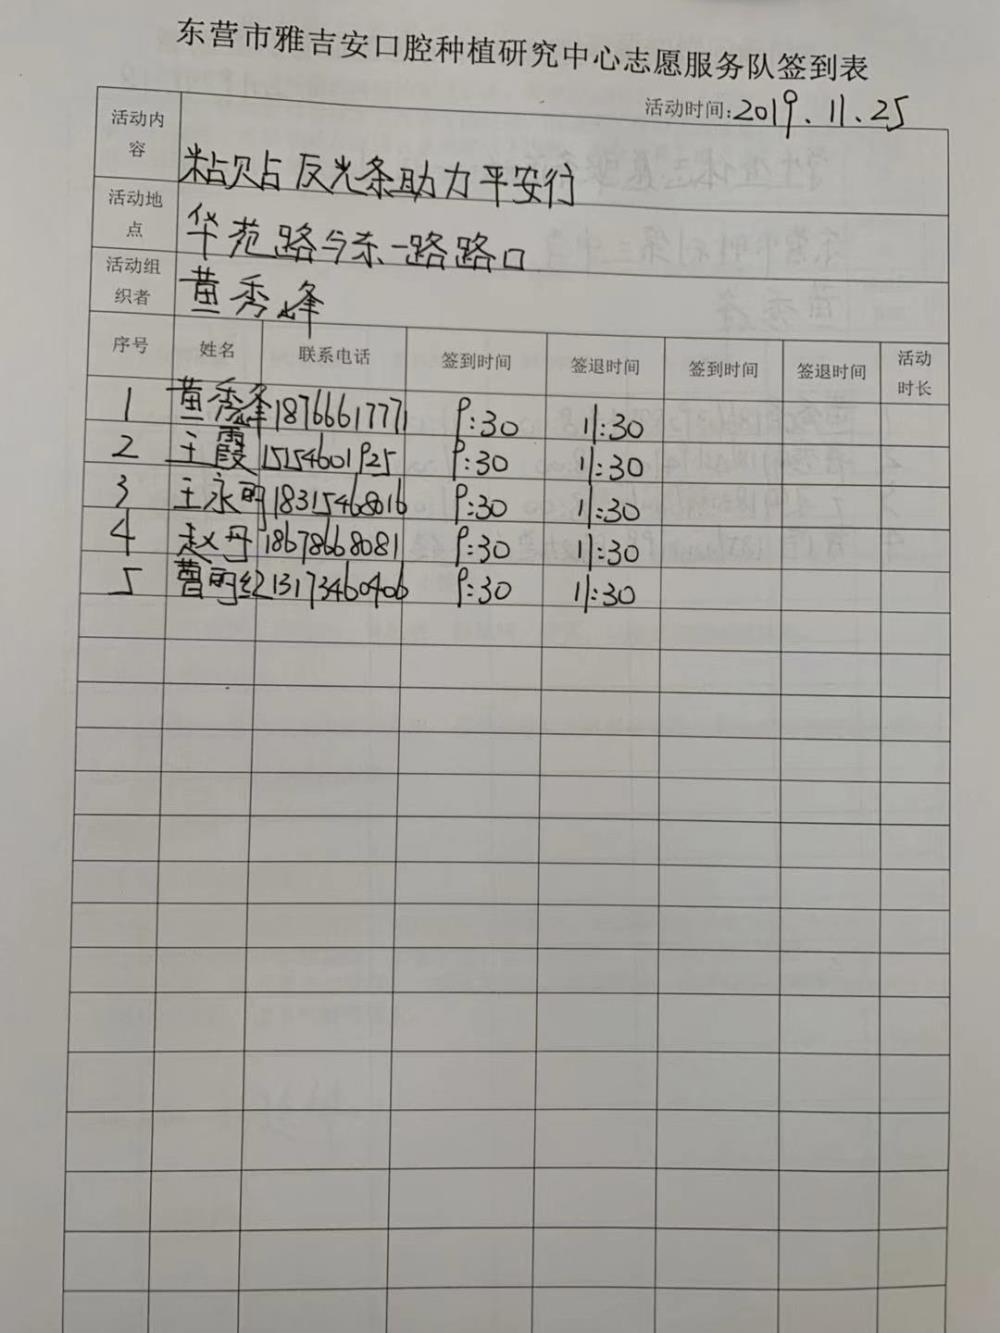 东营市雅吉安口腔种植研究中心志愿服务队签到表
活动时间:2019.11.25
活动内容 粘贴反光条助力平安行
活动地点 华苑路与东一路路口
活动组织者 黄秀峰
序号 姓名 联系电话 签到时间 签退时间 签到时间 签退时间 活动时长
1 黄秀峰 18766617771 9:30 11:30
2 王霞 15154601925 9:30 11:30
3 王永明 18315468016 9:30 11:30
4 赵丹 18678668081 9:30 11:30
5 曹明红 13173460406 9:30 11:30